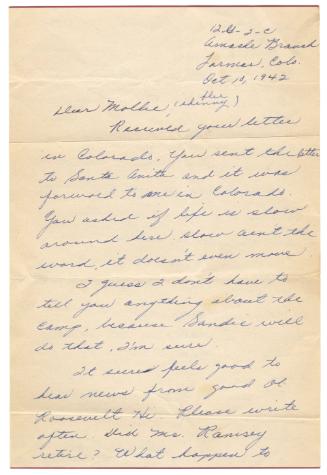 12G-2-C
Amache Branch
Lamar, Colo.
Oct 10, 1942
Dear Mollie, (the skinny)
Received your letter
in Colorado. You sent the letter
to Santa Anita and it was
forword to me in Colorado.
You asked if life is slow
around here slow aint the
word, it doesn't even move.
I guess I don't have to
tell you anything about the
camp, because Sandie will
do that, I'm sure.
It sured feels good to
hear news from good ol
Roosevelt Hi. Please write
often. Did Ms. Ramsey
retire? What happen to